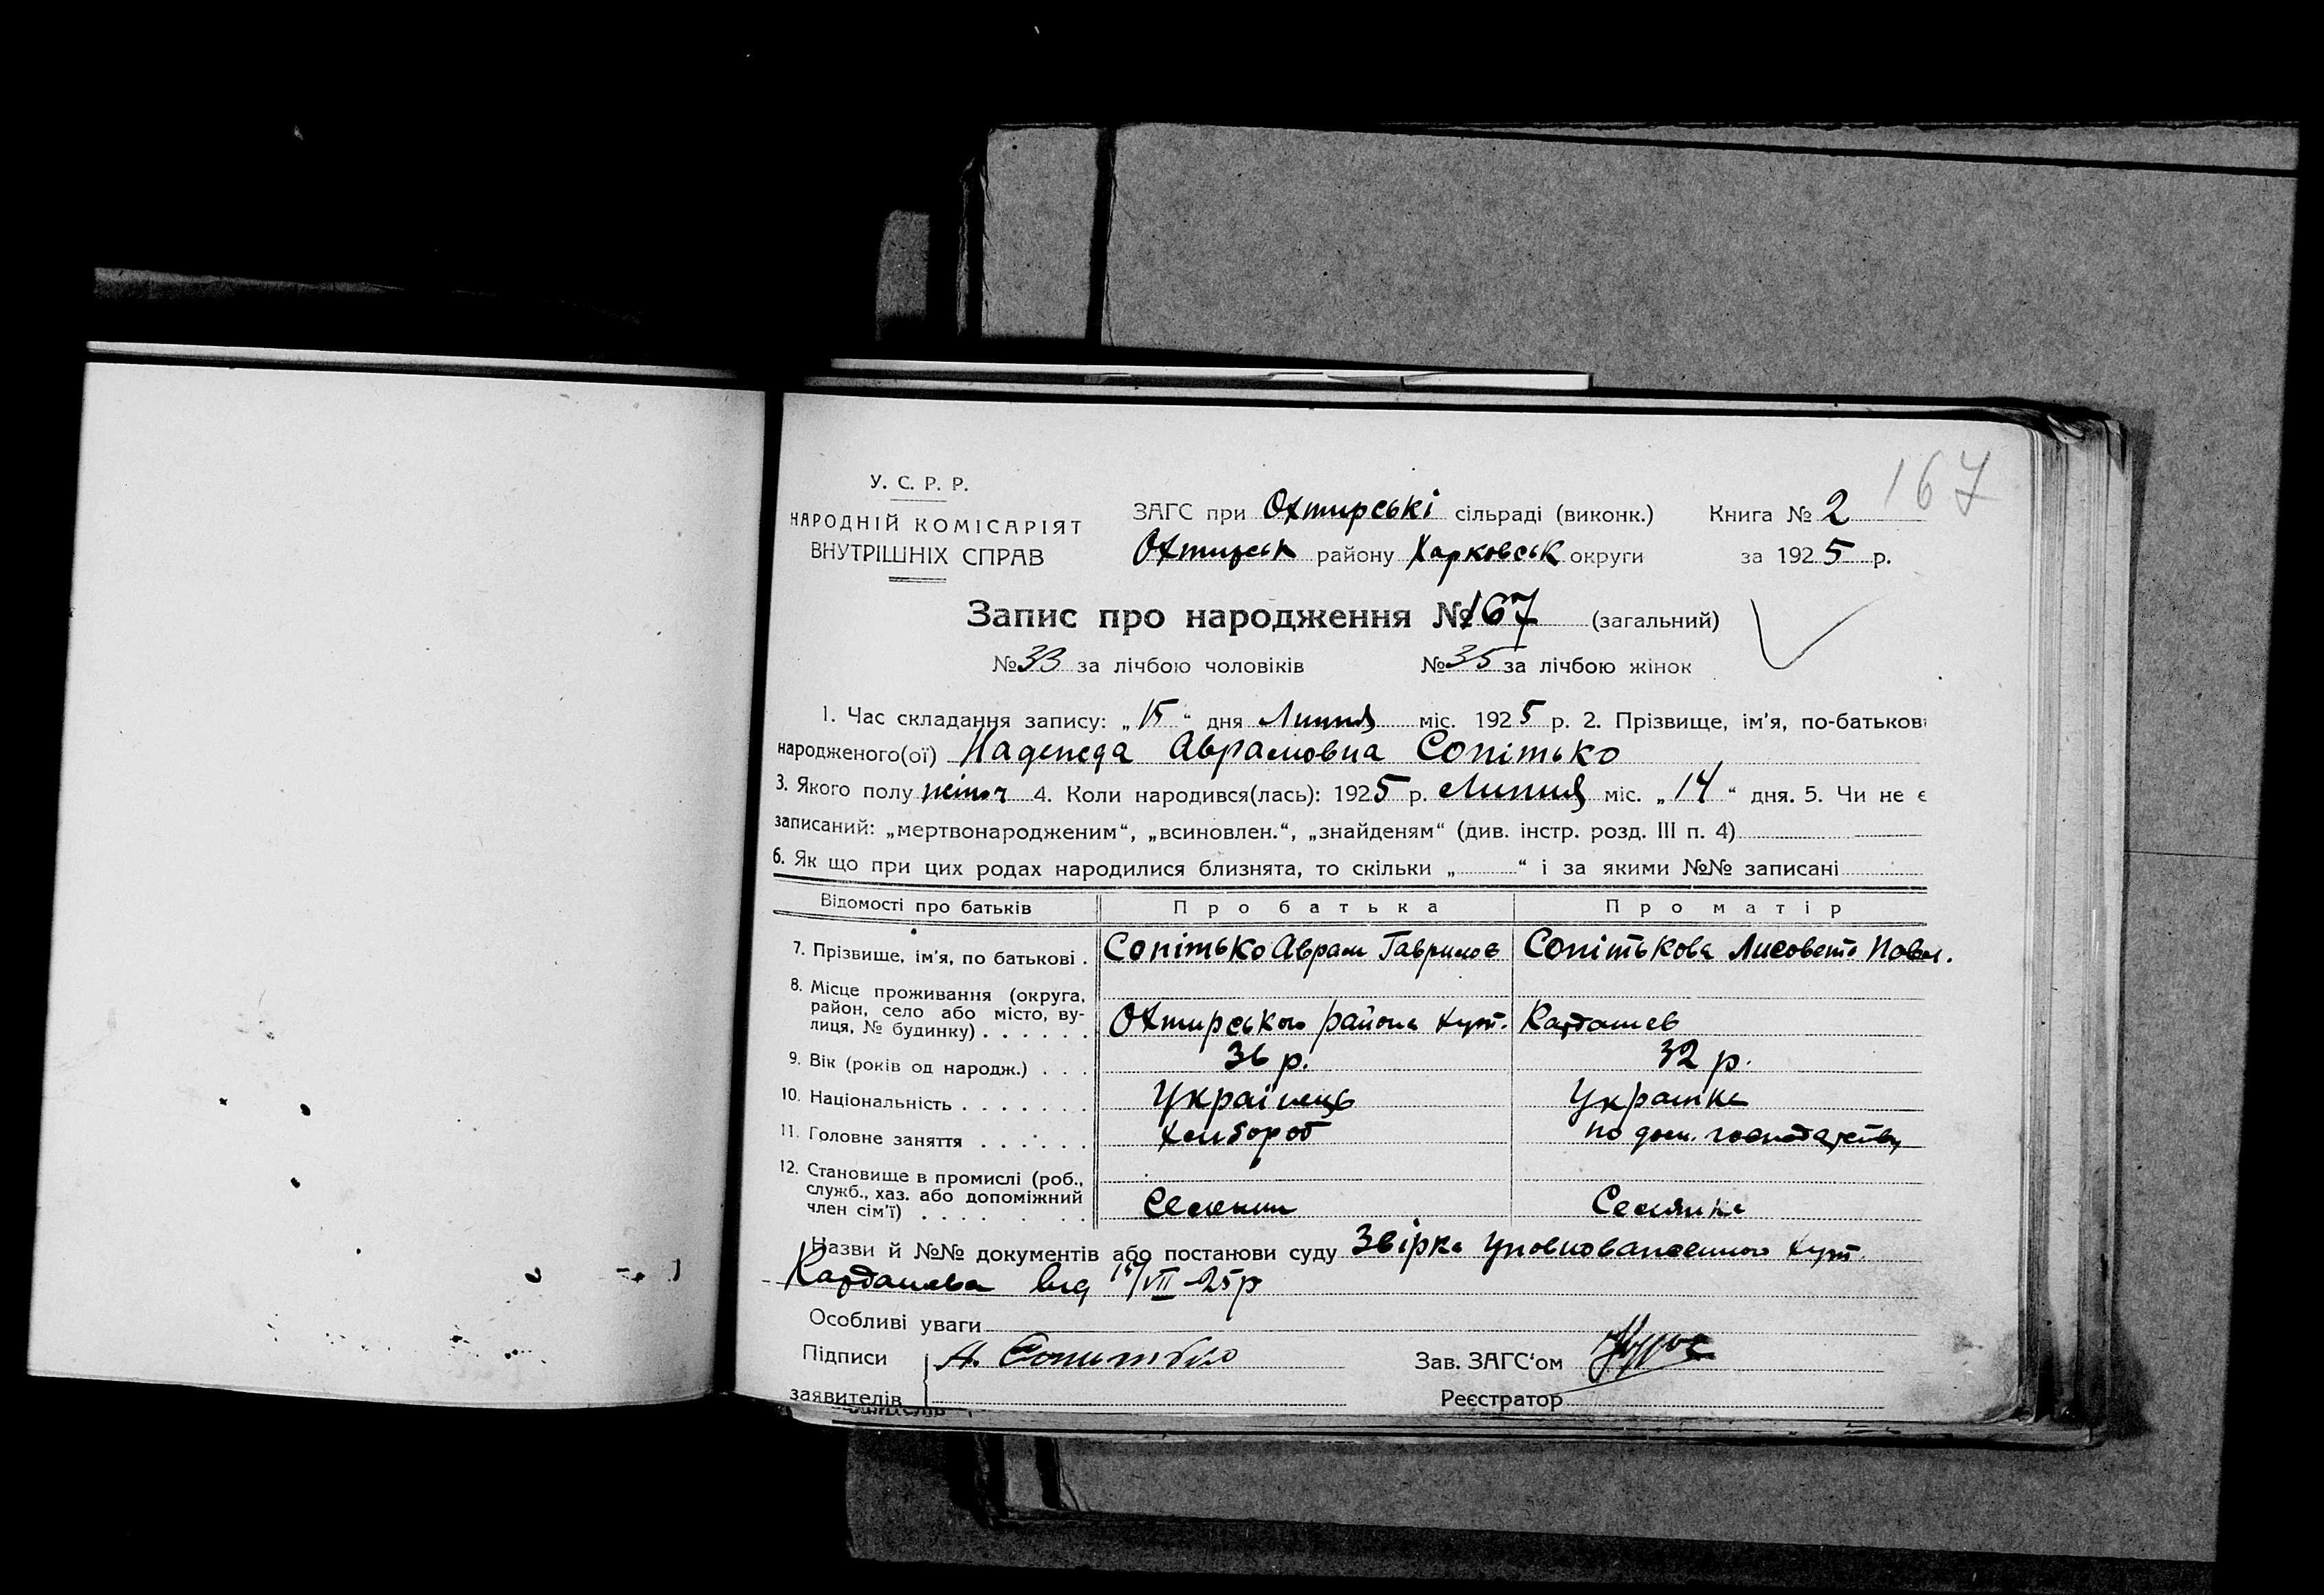 167
У. С. Р. Р.
НАРОДНІЙ КОМІСАРІЯТ
ВНУТРІШНІХ СПРАВ
ЗАГС при Охтирські сільраді (виконк.) Книга № 2
Охтирськ району Харковськ округи за 1925 р.
Запис про народження № 167 (загальний)
№ 33 за лічбою чоловіків № 35 за лічбою жінок
1. Час складання запису: „15“ дня Липня міс. 1925 р. 2. Прізвище, ім'я, по-батькові
народженого(ої) Надежда Аврамовна Сопітько
3. Якого полу жіноч 4. Коли народився(лась): 1925 р. Липня міс. „14“ дня. 5. Чи не є
записаний: „мертвонародженим“, „всиновлен.“, „знайденям“ (див. інстр. розд. III п. 4)
6. Як що при цих родах народилися близнята, то скільки „ “ і за якими №№ записані
Відомості про батьків Про батька Про матір
7. Прізвище, ім'я, по батькові . Сопітько Аврам Гаврилов Сопітькова Лисовета Павл.
8. Місце проживання (округа,
район, село або місто, ву-
лиця, № будинку) . . . . . . Охтирського района хут. Кардашев
9. Вік (років од народж.) . . . 36 р. 32 р.
10. Національність . . . . . . . Українець Украинка
11. Головне заняття . . . . . . Хлибороб по дом. господарству
12. Становище в промислі (роб.,
служб., хаз. або допоміжний
член сім'ї) . . . . . . . Селянин Селянка
Назви й №№ документів або постанови суду Звірка уповноваженного хут.
Кардашева від 15/VII-25р
Особливі уваги
Підписи А. Сопитько Зав. ЗАГС'ом
заявителів Реєстратор